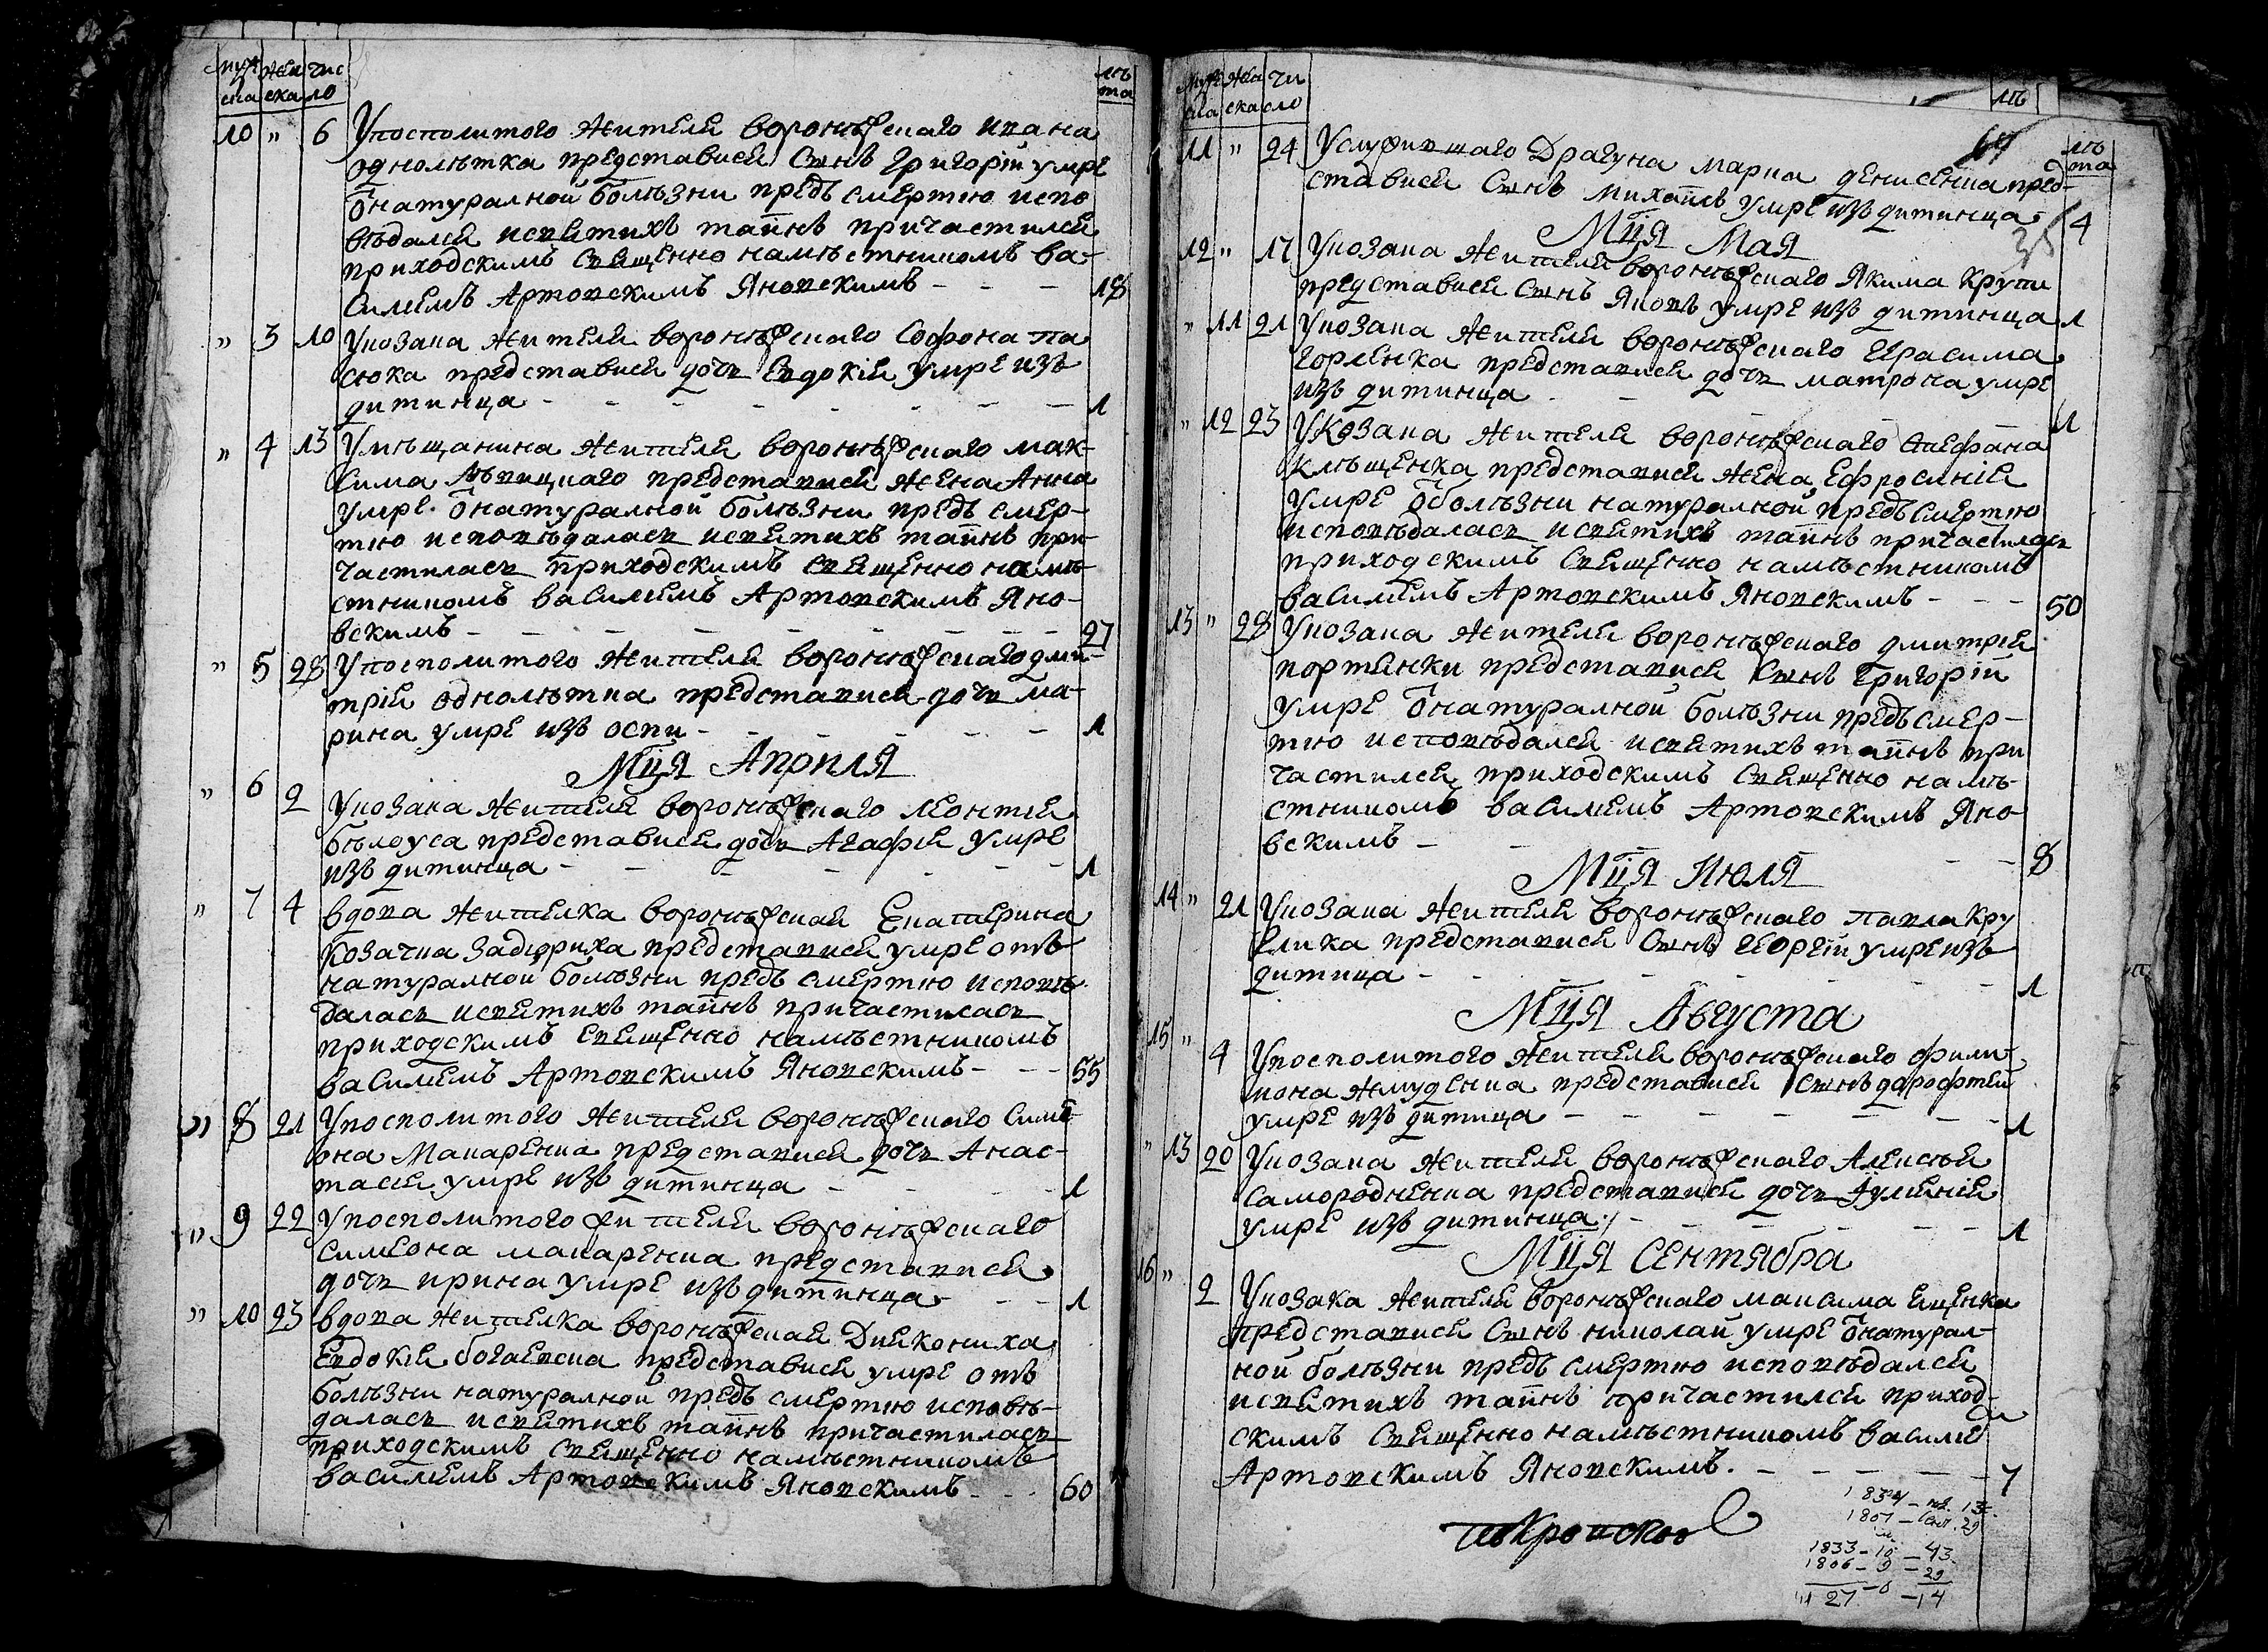 муж жен чис лѣ
ска ска ло та
10 " 6 Упосполитого жителя воронѣжскаго ивана
однолѣтка представися Сынъ Григорій умре
ѿнатуралной болѣзни предъ смертю испо
вѣдался исвятихъ тайнъ причастился
приходскимъ Священно намѣстникомъ ва-
Силиемъ Артовскимъ Яновскимъ - - - 18
" 3 10 Укозака жителя воронѣжскаго Софона па
сюка представися дочь Евдокія умре изъ
дитинца - - - - - - 1
" 4 13 Умѣщанина жителя воронѣжскаго мак-
сима представися жена Анна
умре ѿнатуралной болѣзни предъ смер-
тю исповѣдалась исвятихъ тайнъ при-
частилась приходскимъ Священно намѣ-
стникомъ василиемъ Артовскимъ Яно-
вскимъ - - - - - - 27
" 5 28 Упосполитого жителя воронѣжскаго дми-
трія однолѣтка представися дочь ма-
рина умре изъ оспи - - - - - 1
Мця Априля
" 6 2 Укозака жителя воронѣжскаго леонтія
бѣлоуса представися дочь Агафія умре
изъ дитинца - - - - - - 1
" 7 4 вдова жителка воронѣжская Екатерина
козачка представися умре отъ
натуралной болѣзни предъ смертю исповѣ-
далась исвятихъ тайнъ причастилась
приходскимъ священно намѣстникомъ
василиемъ Артовскимъ Яновскимъ - - - 55
" 8 21 Упосполитого жителя воронѣжскаго Симе-
она Макаренка представися дочь Анас-
тасия умре изъ дитинца - - - - 1
" 9 22 Упосполитого жителя воронѣжскаго
симеона макаренка представися
дочь ирина умре изъ дитинца - - - 1
" 10 23 вдова жителка воронѣжская Дияконуха
Евдокія представися умре отъ
болѣзни натуралной предъ смертю исповѣ-
далась исвятихъ тайнъ причастилась
приходскимъ Священно намѣстникомъ
василиемъ Артовскимъ Яновскимъ - - - 60
муж жен чи лѣ
ска ска сло
69 лѣ
та
11 " 24 Услужившаго Драгуна марка денисенка пред-
ставися Сынъ михаилъ умре изъ дитинца 4
Мця Мая
12 " 17 Укозака жителя воронѣжскаго Якима Крупи
представися Сынъ Яковъ умре изъ дитинца 1
" 11 21 Укозака жителя воронѣжскаго герасима
горленка представися дочь матрона умре
изъ дитинца - - - - 1
" 12 23 Укозака жителя воронѣжскаго Стефана
клѣщенка представися жена Ефросинія
умре ѿболѣзни натуралной предъ смертю
исповѣдалась исвятихъ тайнъ причастилась
приходскимъ Священно намѣстникомъ
василиемъ Артовскимъ Яновскимъ - - - 50
13 " 28 Укозака жителя воронѣжскаго дмитрія
портянки представися Сынъ Григорій
умре ѿнатуралной болѣзни предъ смер-
тю исповѣдался исвятихъ тайнъ при
частился приходскимъ Священно намѣ-
стникомъ василиемъ Артовскимъ Яно-
вскимъ - - - - - 8
Мця Июля
14 " 21 Укозака жителя воронѣжскаго павла Кру
глика представися Сынъ георгій умре изъ
дитинца - - - - - 1
Мця Августа
15 " 4 Упосполитого жителя воронѣжскаго фили-
мона представися Сынъ дорофтей
умре изъ дитинца - - - - - 1
" 13 20 Укозака жителя воронѣжскаго Алексѣя
самородненка представися дочь Иулянія
умре изъ дитинца - - - - - 1
Мця Сентября
16 " 2 Укозака жителя воронѣжскаго максима
представися Сынъ николай умре ѿнатурал-
ной болѣзни предъ смертю исповѣдался
исвятихъ тайнъ причастился приход-
скимъ Священно намѣстникомъ василие
Артовскимъ Яновскимъ. - - - - 7
1807
1833 - 10 - 43
1806 - 9 - 29
27 - 0 - 14